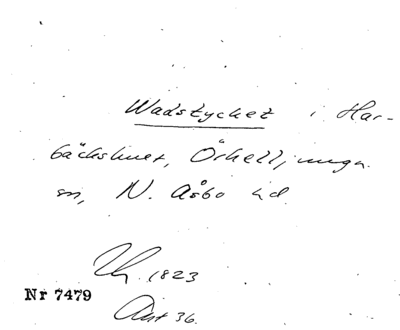 Wadstycket i Har-
bäckshult, Örkelljunga
sn, N. Åsbo hd.
Uh. 1823
Nr 7479
Akt 36.